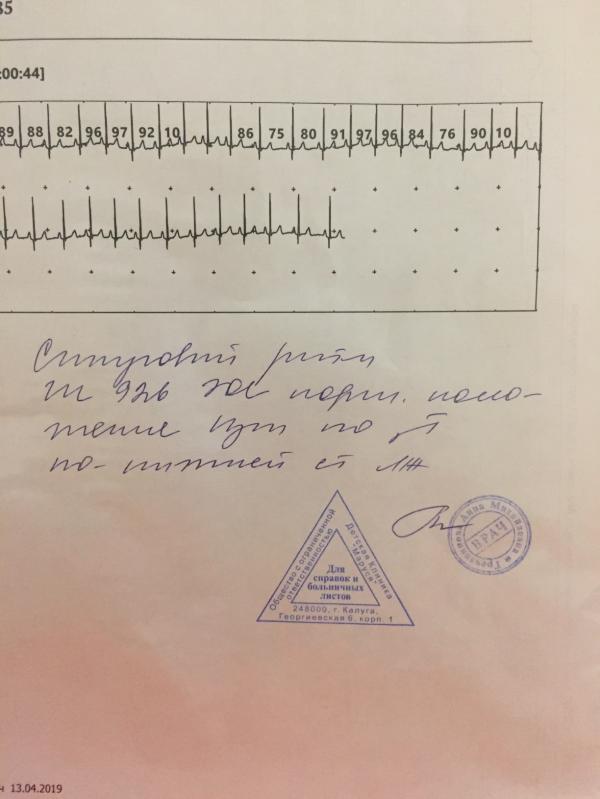 85
:00:44]
89 88 82 96 97 92 10 86 75 80 91 97 96 84 76 90 10
Синусовый ритм
ЭОС норм. поло-
жение по
по нижней ст ЛЖ
Общество с ограниченной ответственностью
Детская Клиника "Маруся"
Для
справок и
больничных
листов
248000, г. Калуга,
Георгиевская 6, корп. 1
Анна Михайловна
ВРАЧ
ч 13.04.2019